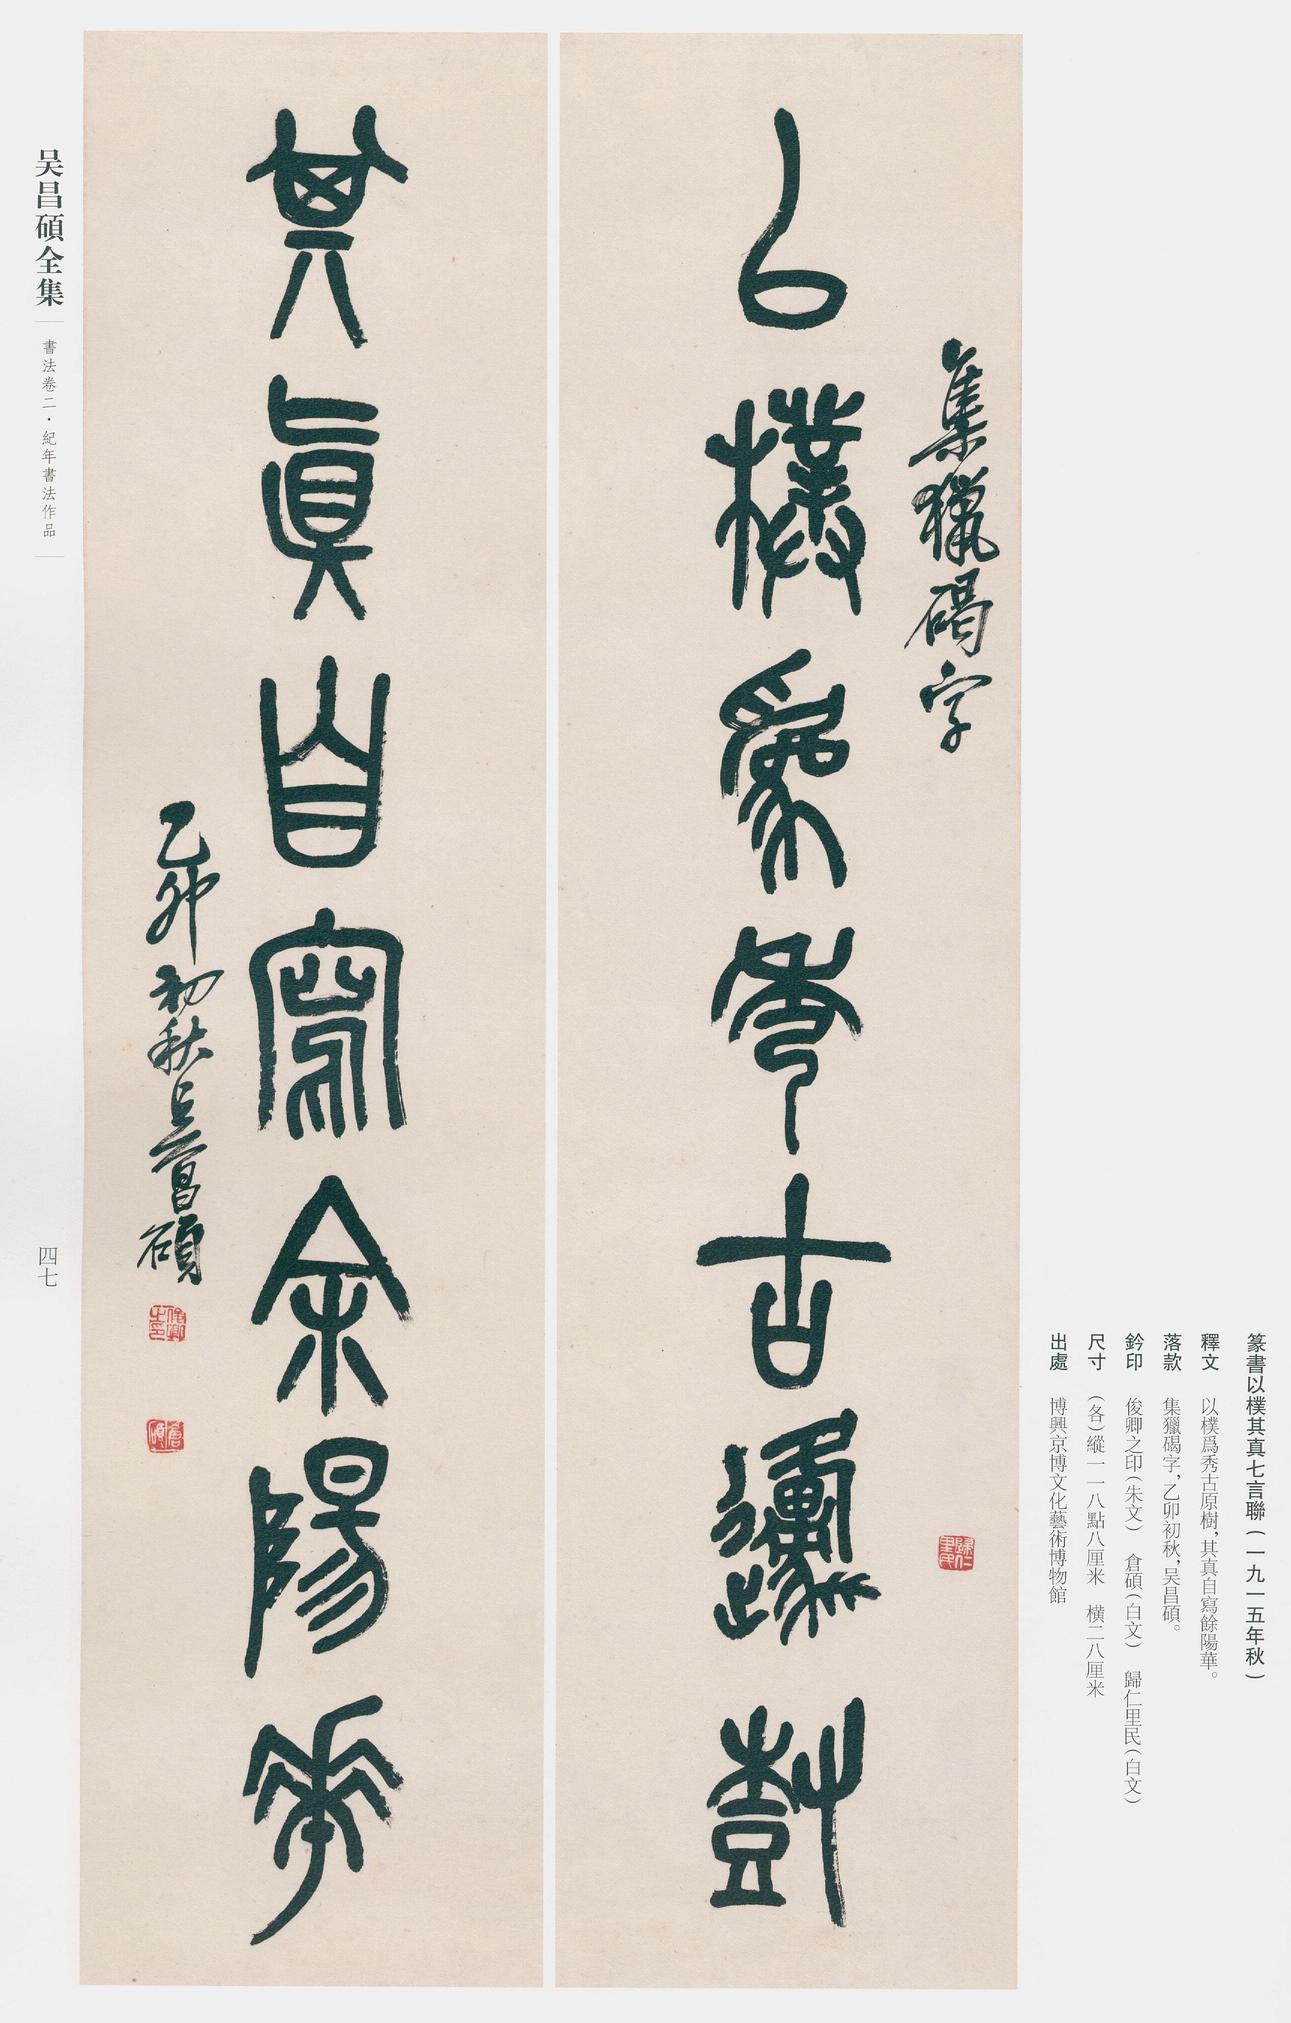 篆書以樸其真七言聯(一九一五年秋)
釋文 以樸爲秀古原樹，其真自寫餘陽華。
落款 集獵碣字，乙卯初秋，吴昌碩。
鈐印 俊卿之印(朱文) 倉碩(白文) 歸仁里民(白文)
尺寸 (各)縱一一八點八厘米 橫二八厘米
出處 博興京博文化藝術博物館
集獵碣字
歸仁里民
以樸爲秀古原樹
其真自寫余陽華
乙卯初秋吴昌碩
俊卿之印
倉碩
吴昌碩全集
書法卷二·紀年書法作品
四七